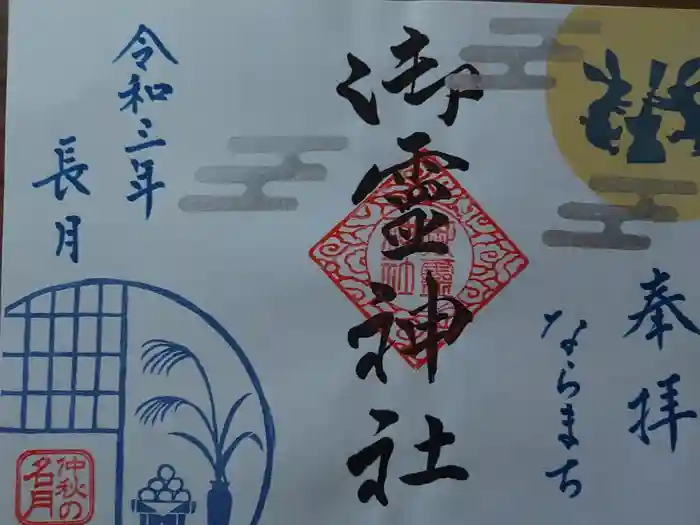 奉拝
ならまち
御霊神社
令和三年
長月
仲秋の
名月